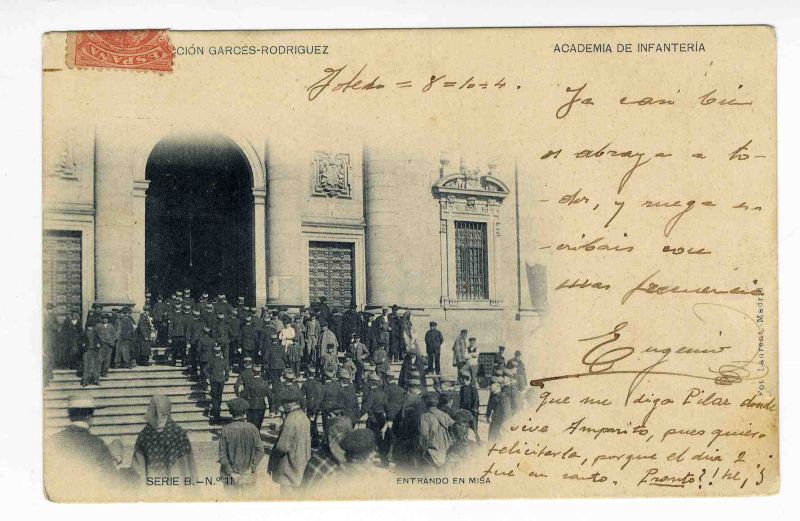 ESPAÑA
CCIÓN GARCÉS-RODRIGUEZ
ACADEMIA DE INFANTERÍA
Toledo = 8 = 10 = 4.
Ya casi bien
os abraza a to-
-dos, y ruega es
-cribais con
mas frecuencia
Eugenio
Que me diga Pilar donde
vive Amparito, pues quiero
felicitarla, porque el dia 2
fué su santo. Pronto?!
Fot. Laurent. Madrid
SERIE B.-N.º 11
ENTRANDO EN MISA